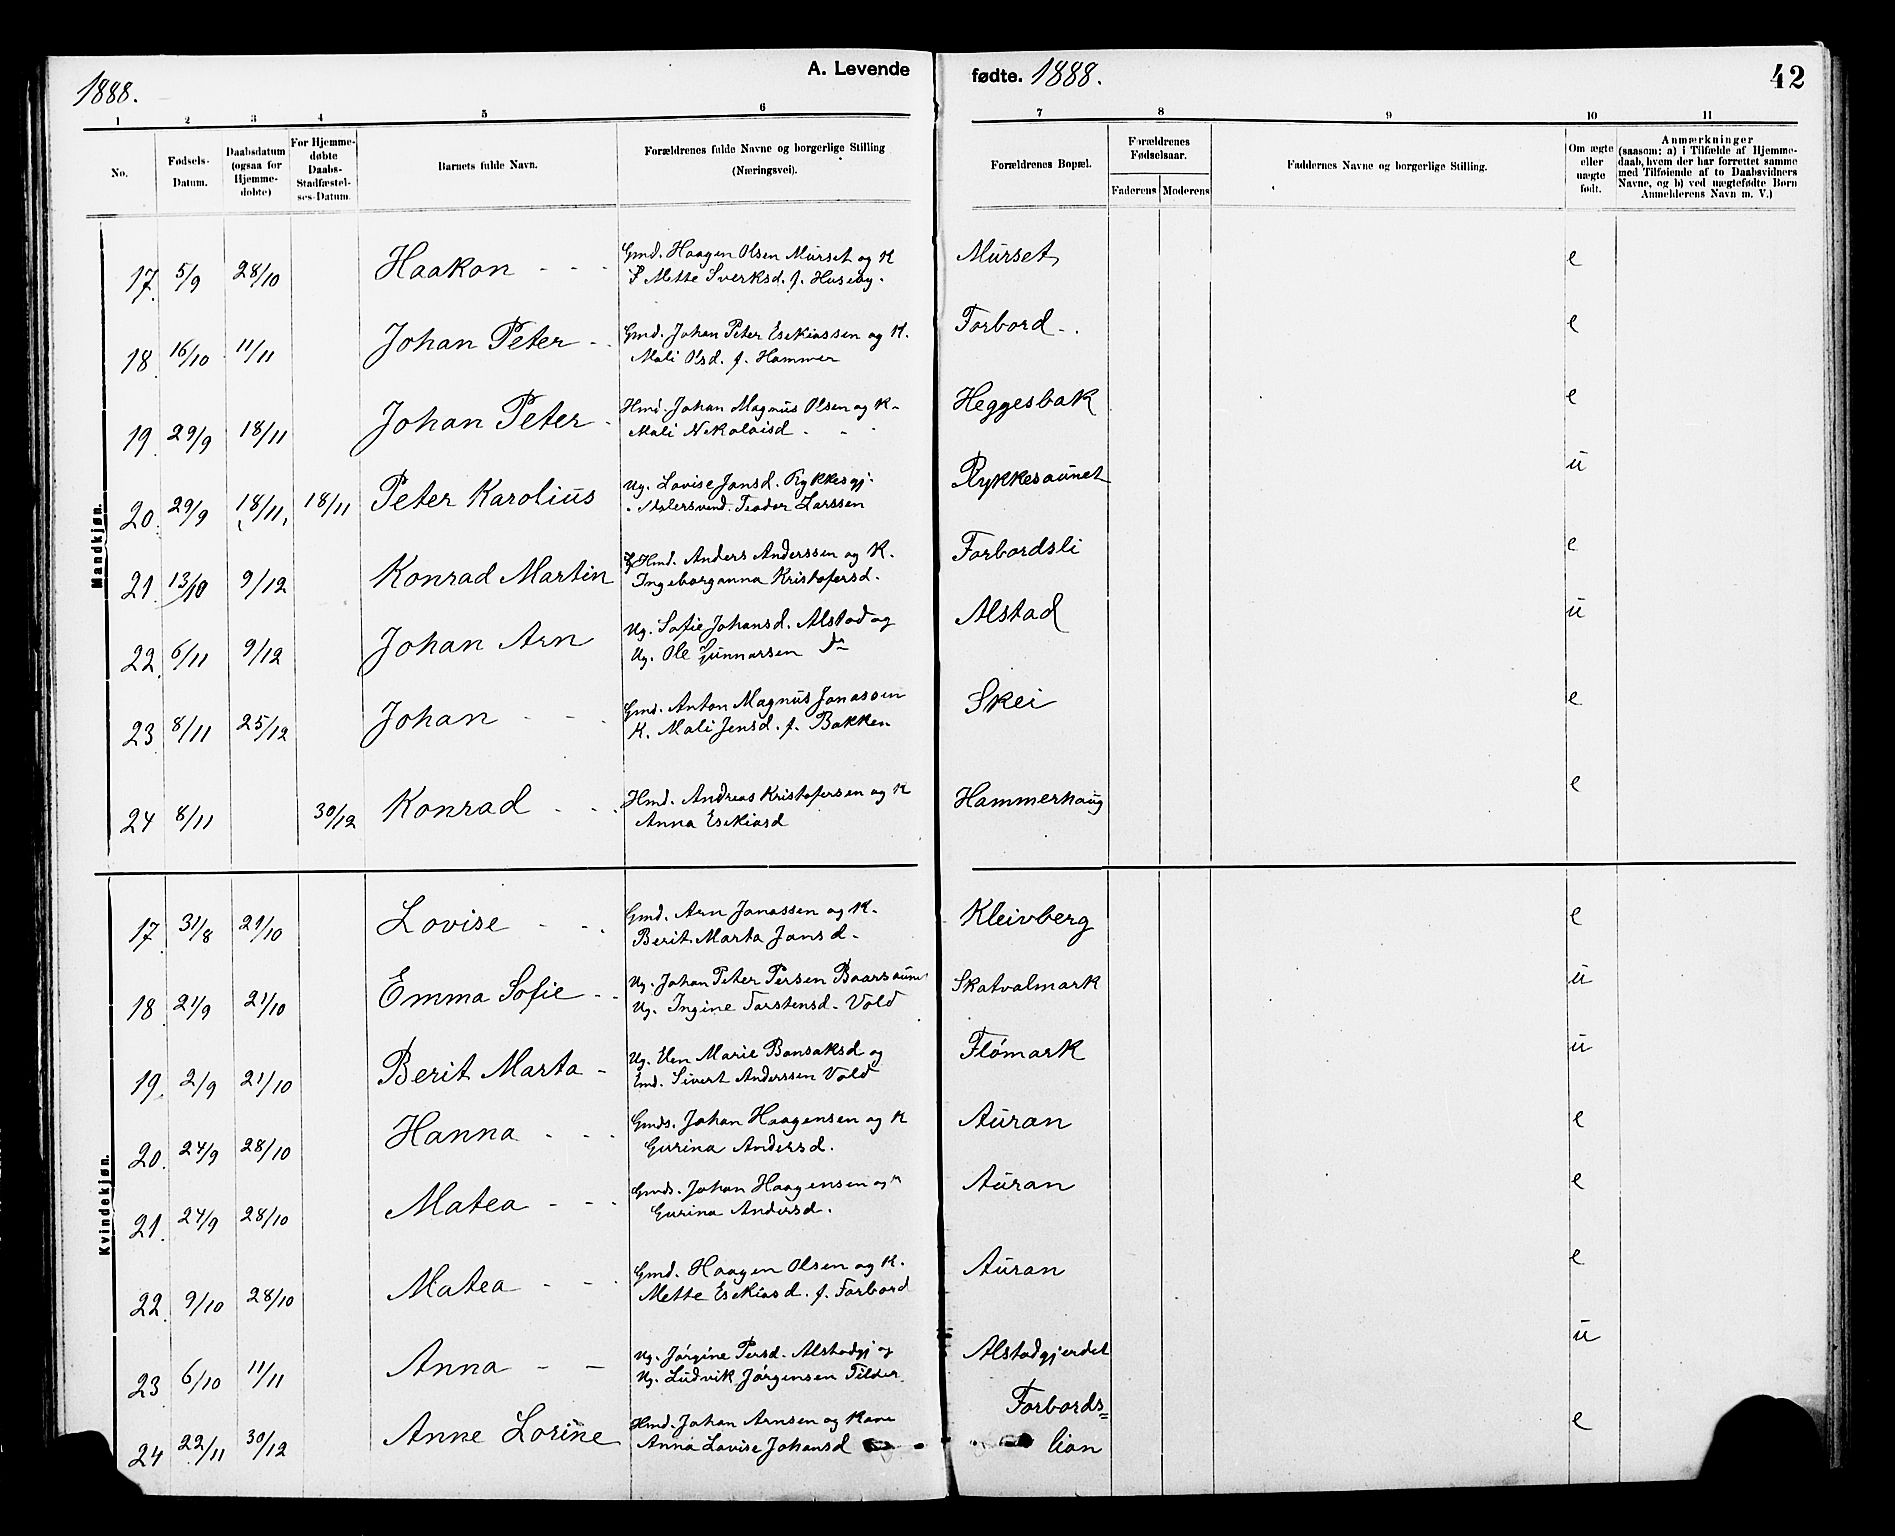 1888.
A. Levende
fødte. 1888.
42
1 2 3 4 5 6 7 8 9 10 11
No.
Fødsels-Datum.
Daabsdatum (ogsaa for Hjemme-døbte)
For Hjemme-døbte Daabs-Stadfæstel-ses-Datum.
Barnets fulde Navn.
Forældrenes fulde Navne og borgerlige Stilling
(Næringsvei).
Forældrenes Bopæl.
Forældrenes Fødselsaar.
Faderens Moderens
Faddernes Navne og borgerlige Stilling.
Om ægte eller uægte født.
Anmærkninger
(saasom: a) i Tilfælde af Hjemme-
daab, hvem der har forrettet samme
med Tilføiende af to Daabsvidners
Navne, og b) ved uægtefødte Børn
Anmelderens Navn m. V.)
Mandkjøn.
17. 5/9 28/10 Haakon - - - Gmd. Haagen Olsen Murset og K Murset e
Mette Sverksd. f. Huseby.
18 16/10 11/11 Johan Peter - - Gmd. Johan Peter Esekiassen og K. Forbord - . e
Mali Olsd. f. Hammer
19 29/9 18/11 Johan Peter - Hmd. Johan Magnus Olsen og K- Heggesbak e
Mali Nikolaisd - - -
20. 29/9 18/11, 18/11 Peter Karolius Ug. Lovise Jansd. Rykkesgj. Rykkesaunet u
Teodor Larssen
21. 13/10 9/12 Konrad Martin Hmd. Anders Anderssen og K. Forbordsli e
Ingeborganna Kristofersd.
22. 6/11 9/12 Johan Arn Ug. Sofie Johansd. Alstad og Alstad u
Ug. Ole Gunnarsen do
23 8/11 25/12 Johan - - - Gmd. Anton Magnus Jonassen Skei e
K. Mali Jensd. f. Bakken
24 8/11 30/12 Konrad - - - Hmd. Andreas Kristofersen og K Hammerhaug e
Anna Esekiasd
Kvindekjøn.
17. 31/8 21/10 Lovise - - - Gmd. Arn Jonassen og K. Kleivberg e
Berit Marta Jansd -
18 21/9 21/10 Emma Sofie - - Ug. Johan Peter Persen Baarsaune Skatvalmark u
Ug. Ingine Torstensd - Vold
19. 2/9 21/10 Berit Marta - Ug. Elen Marie Bonsaksd og Flómark u
Sivert Anderssen Vold
20. 24/9 28/10 Hanna - - - Gmds. Johan Haagensen og K Auran e
Gurina Andersd.
21. 24/9 28/10 Matea - - - Gmds. Johan Haagensen og K Auran e
Gurina Andersd.
22 9/10 28/10 Matea - - - Gmd. Haagen Olsen og K. Auran e
Mette Esekiasd. f. Forbord
23 6/10 11/11 Anna - - Ug. Jórgine Persd. Alstadgj og Alstadgjerdet u
Ug. Ludvik Jórgensen Tilder.
24 22/11 30/12 Anne Lorine Hmd. Johan Arnsen og Kone Forbords= e
Anna Lovise Johansd lian